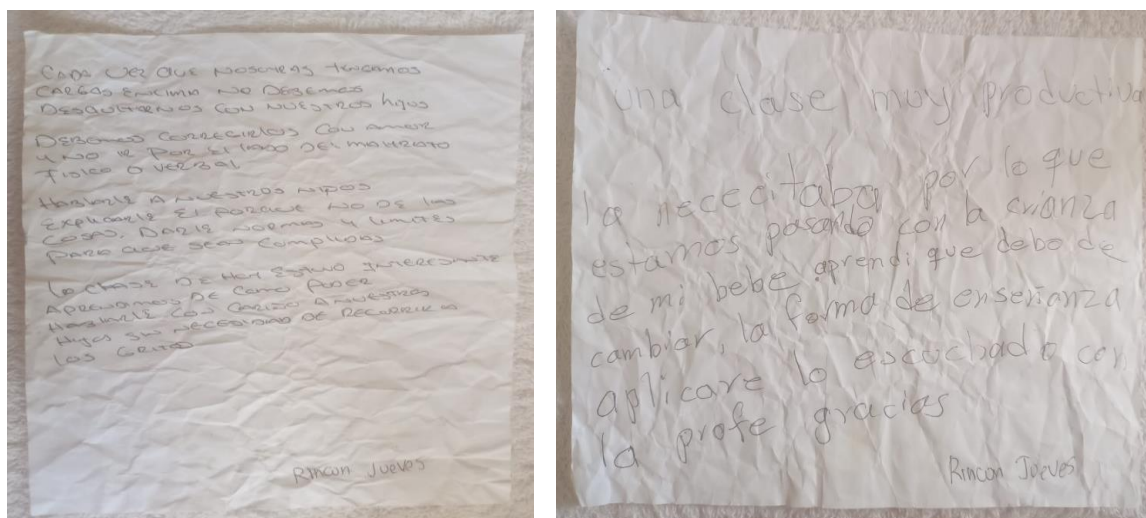 CADA VEZ QUE NOSOTRAS TENGAMOS
CARGAS ENCIMA NO DEBEMOS
DESQUITARNOS CON NUESTROS hijos
DEBEMOS CORREGIRLOS CON AMOR
Y NO IR POR EL LADO DEL MALTRATO
FISICO O VERBAL
HABLARLE A NUESTROS NIÑOS
EXPLICARLE EL PORQUE NO DE LAS
COSAS, DARLE NORMAS Y LIMITES
PARA QUE SEAN CUMPLIDAS
LA CLASE DE HOY ESTUVO INTERESANTE
APRENDIMOS DE COMO PODER
HABLARLE CON CARIÑO A NUESTROS
HIJOS SIN NECESIDAD DE RECURRIR A
LOS GRITOS
Rincon Jueves
una clase muy productiva
la nececitaba por lo que
estamos pasando con la crianza
de mi bebe aprendi que debo de
cambiar, la forma de enseñanza
aplicare lo escuchado con
la profe gracias
Rincon Jueves